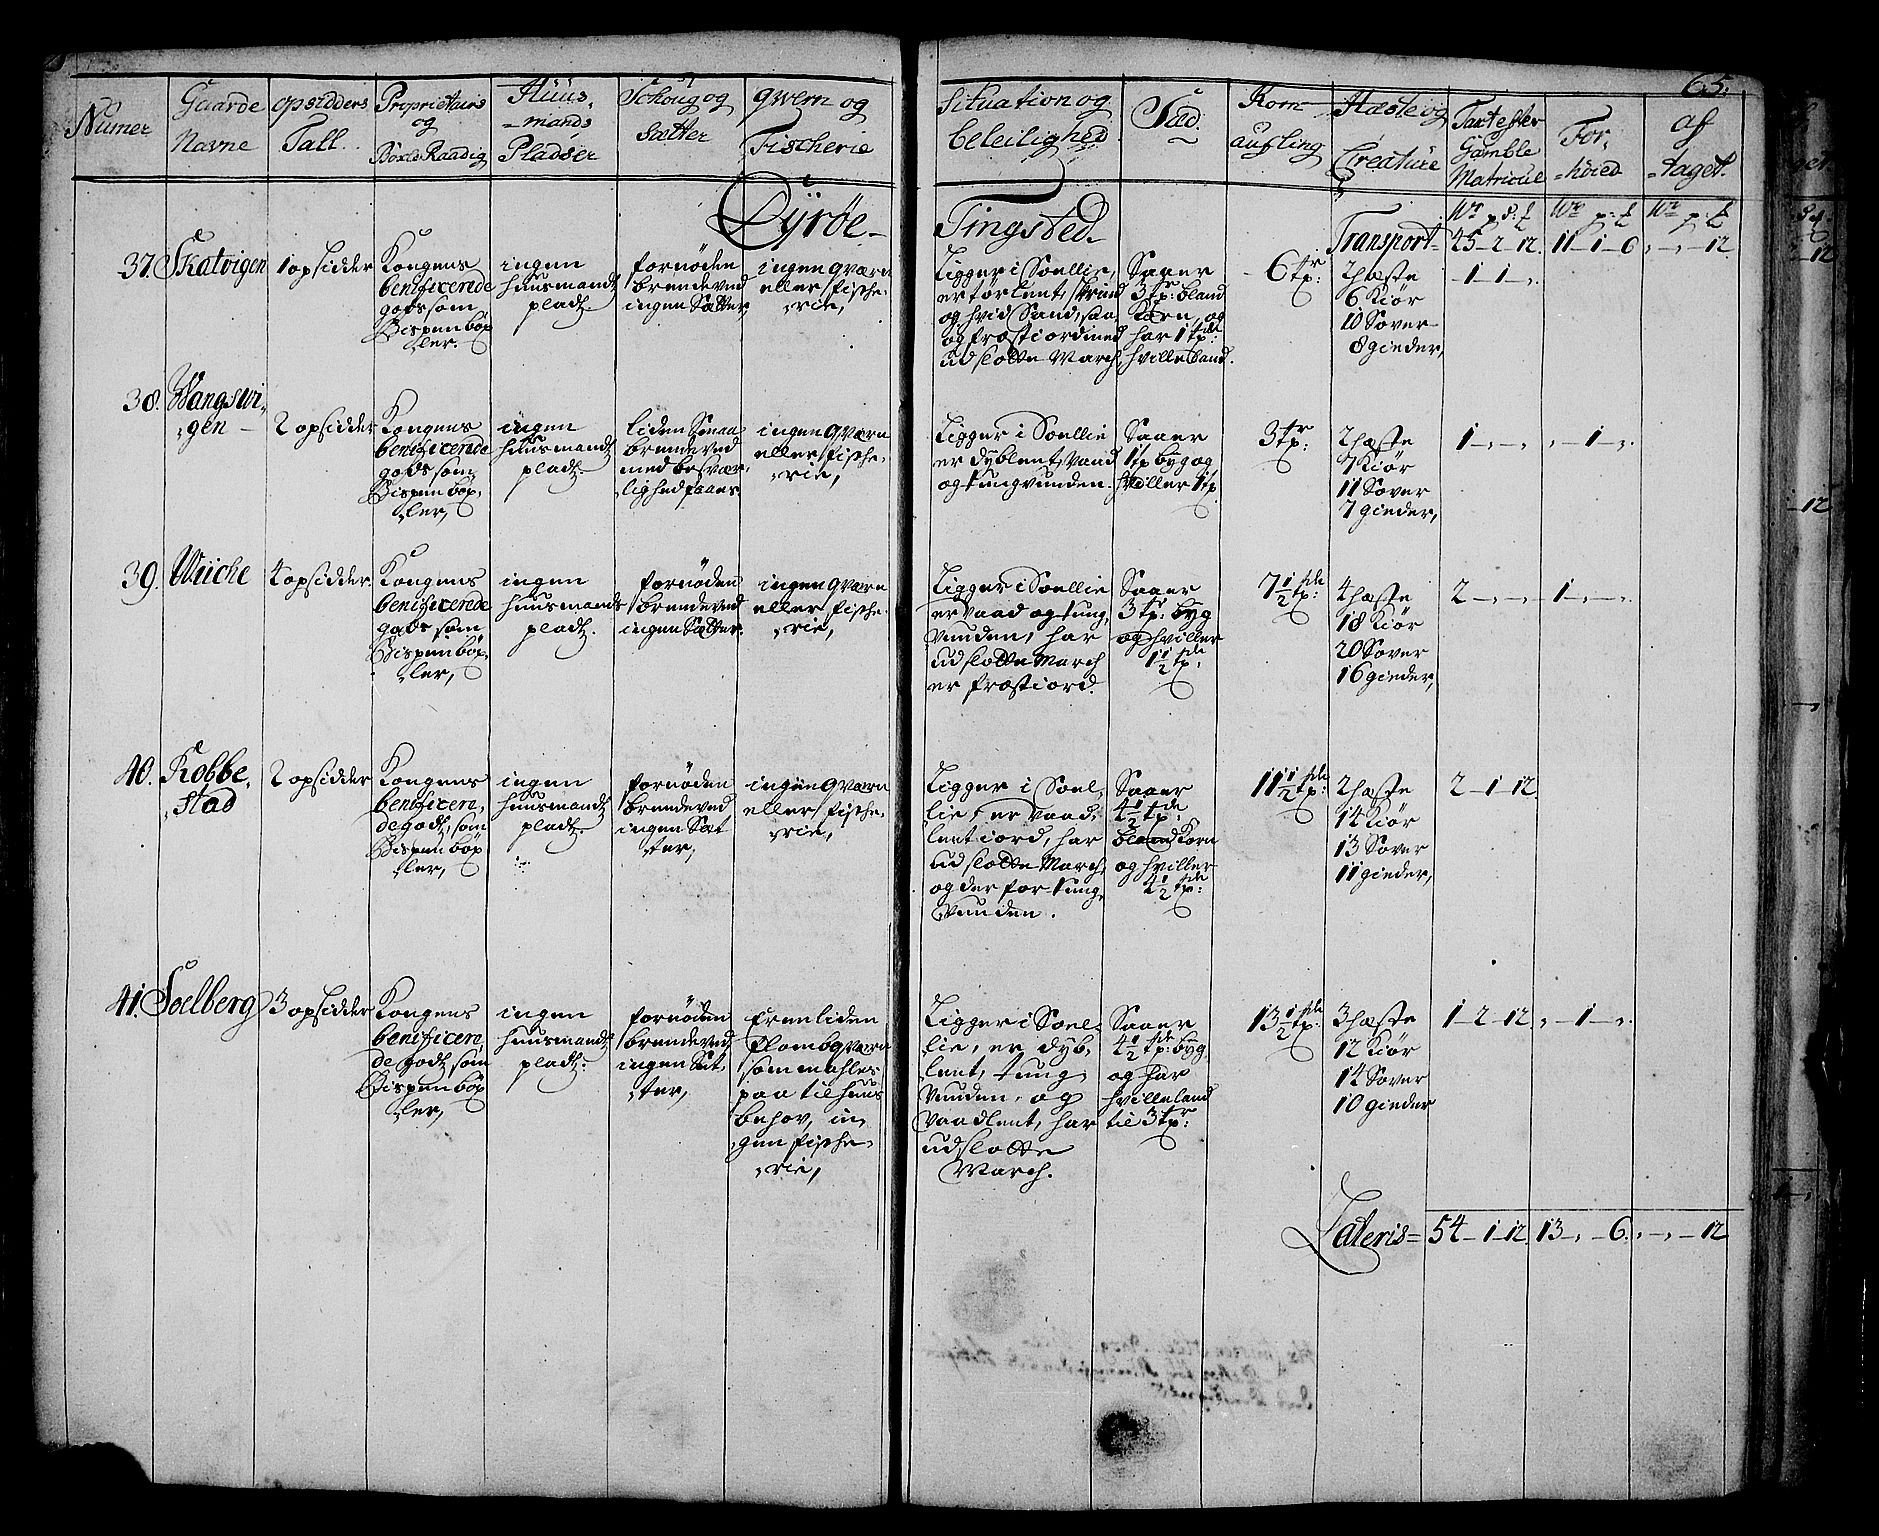 65.
Numer
Gaarde
Navne
opsidders
Tall.
Proprietairs
og
Böxel Raadig
Huus-
-mands
Pladser
Schoug og
Sætter
qwern og
Fischerie
Situation og
beleilighed
Sæd.
Korn
aufling
Hæste og
Creature
Taxt efter
Gamble
Matricul
For-
-höied
af
-taget.
Dÿröe-
Tingsted-
Transport- 45-2-12. 11-1-6 ,-,-12
37. Skatvigen
1 opsidder
Kongens
benificerede
gods som
Bispen böx
ler.
ingen
huusmandz
pladz
fornöden
brendeved
ingen Sætter
ingen qværn
eller fische-
rie,
Ligger i Soellie,
er tör lent, skrind
og hvid Sand, saa
og fræstiord med
udslotte March,
Saaer
3 tr: bland
Korn, og
har 1 tde:
hvilleland.
6 tr:
2 hæste
6 Kiör
10 Sover
8 gieder,
1-1-,.
38. Wangswi-
gen-
2 opsidder
Kongens
benificerede
gods som
Bispen böx-
ler,
ingen
huusmandz
pladz.
liden Smaa
brendeved
med besvær-
lighed faaes
ingen qværn
eller fische-
rie,
Ligger i Soellie
er dyblent, Vaad
og tungvunden.
Saaer
1 tr byg og
hviller 1 tr
3 tr:
2 hæste
7 Kiör
11 Sover
7 gieder,
1-,-,
,-1-,.
39. Wiiche
4 opsidder
Kongens
benificerede
gods som
Bispen böx-
ler,
ingen
huusmands
pladz.
fornöden
brendeved
ingen Sætter.
ingen qværn
eller fische-
rie,
Ligger i Soellie
er vaad og tung-
vunden, har
udslotte March
er fræstiord.
Saaer
3 tr: byg
og hviller
1 1/2 tde:
7 1/2 tde:
4 hæste
18 Kiör
20 Sover
16 gieder,
2-,-,
1-,-,.
40. Kobbe-
stad
2 opsidder
Kongens
benificere-
de godz, som
Bispen böx
ler,
ingen
huusmandz
pladz.
fornöden
brendeved
ingen Sæt
ter,
ingen qværn
eller fische-
rie,
Ligger i Soel-
lie, er vaad-
lent iord, har
udslotte March,
og der for tung-
vunden.
Saaer
4 1/2 tde:
bland Korn
og hviller
4 1/2 tde:
11 1/2 tde:
2 hæste
14 Kiör
13 Sover
11 gieder,
2-1-12.
41. Soelberg
3 opsidder
Kongens
benificere-
de godz, som
Bispen böx
ler,
ingen
huusmandz
pladz.
fornöden
brendeved
ingen Sæt-
ter,
Er en liden
flomb qværn
som mahles
paa til huus
behov, in-
gen fische-
rie,
Ligger i Soel-
lie, er dyb-
lent, tung-
vunden, og
vaadlent, har
udslotte
March.
Saaer
4 1/2 tde: byg
og har
hvilleland
til 3 tr:
13 1/2 tde:
3 hæste
12 Kiör
14 Sover
10 gieder
1-2-12.
,-1-,.
Lateris= 54-1-12. 13-,-6. ,-,-12